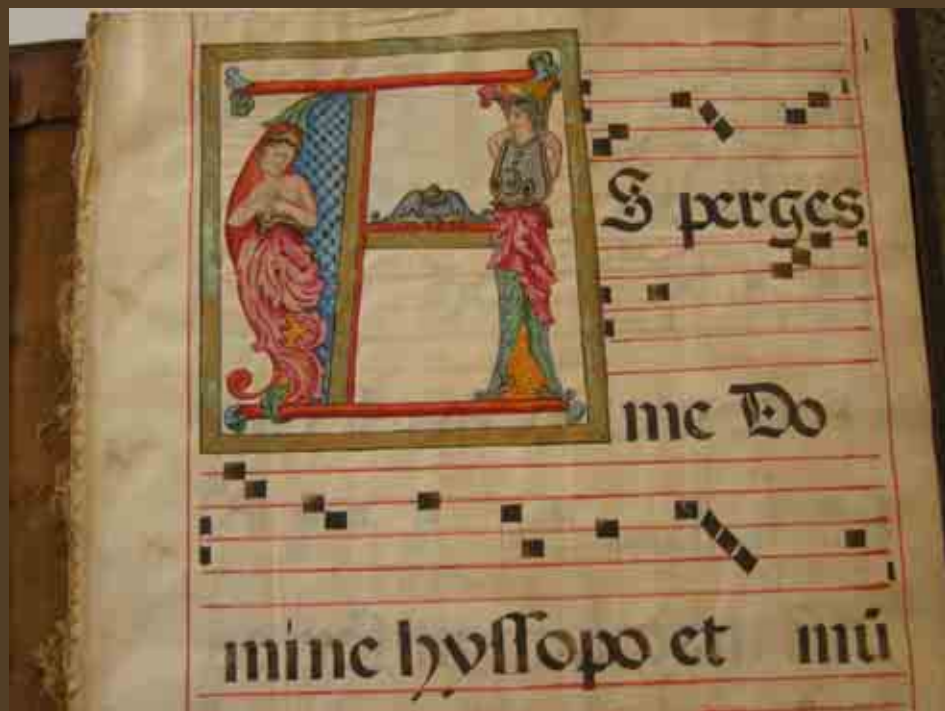 AS perges
me Do
mine hyssopo et mū